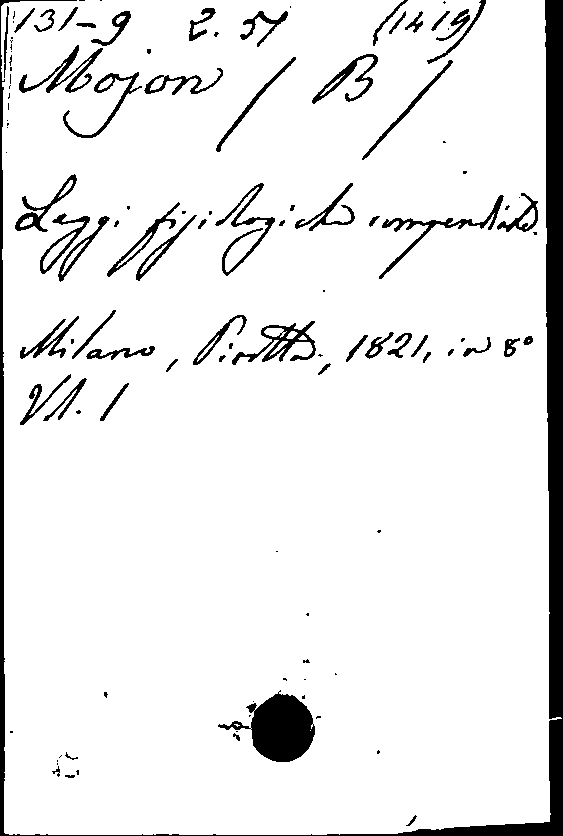 131-9 2. 51 (1419)
Mojon / B /
Leggi fisiologiche compendiate.
Milano, Pirotta, 1821, in 8°
Vol. 1